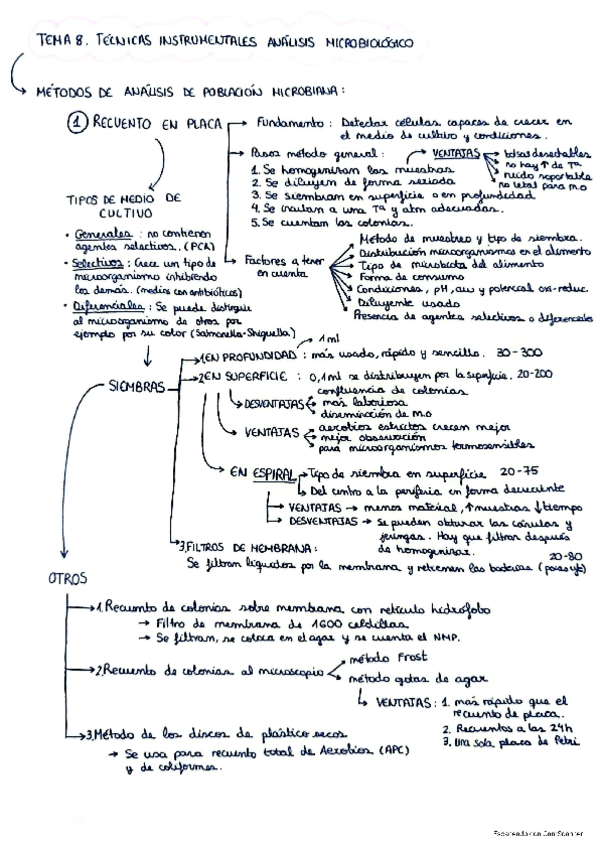 TEMA 8. TÉCNICAS INSTRUMENTALES ANÁLISIS MICROBIOLÓGICO
MÉTODOS DE ANÁLISIS DE POBLACIÓN MICROBIANA:
1 RECUENTO EN PLACA
Fundamento: Detectar células capaces de crecer en
el medio de cultivo y condiciones.
Pasos método general:
1. Se homogenizan las muestras
2. Se diluyen de forma seriada
3. Se siembran en superficie o en profundidad
4. Se incuban a una Tª y atm adecuadas.
5. Se cuentan las colonias.
VENTAJAS
bolsas desechables
no hay ↑ de Tª
ruido soportable
no letal para m.o
Factores a tener
en cuenta
Método de muestreo y tipo de siembra.
Distribución microorganismos en el alimento
Tipo de microbiota del alimento
Forma de consumo
Condiciones, pH, aw y potencial oxi-reduc.
Diluyente usado
Presencia de agentes selectivos o diferenciales
TIPOS DE MEDIO DE
CULTIVO
• Generales: no contienen
agentes selectivos. (PCA)
• Selectivos: Crece un tipo de
microorganismo inhibiendo
los demás. (medios con antibióticos)
• Diferenciales: Se puede distinguir
al microorganismo de otros por
ejemplo por su color (Salmonella-Shiguella)
SIEMBRAS
1 ml
1 EN PROFUNDIDAD: más usado, rápido y sencillo. 30-300
2 EN SUPERFICIE: 0,1 ml se distribuyen por la superficie. 20-200
DESVENTAJAS
confluencia de colonias
más laboriosa
diseminación de m.o
VENTAJAS
aerobios estrictos crecen mejor
mejor observación
para microorganismos termosensibles
EN ESPIRAL
Tipo de siembra en superficie 20-75
Del centro a la periferia en forma decreciente
VENTAJAS → menos material, ↑ muestras ↓ tiempo
DESVENTAJAS → Se pueden obturar las cánulas y
jeringas. Hay que filtrar después
de homogenizar.
3. FILTROS DE MEMBRANA: 20-80
Se filtran líquidos por la membrana y retienen las bacterias
OTROS
1. Recuento de colonias sobre membrana con retículo hidrófobo
→ Filtro de membrana de 1600 celdillas
→ Se filtran, se coloca en el agar y se cuenta el NMP.
2. Recuento de colonias al microscopio
método Frost
método gotas de agar
VENTAJAS: 1. más rápido que el
recuento de placa.
2. Recuentos a las 24h
3. Una sola placa de Petri
3. Método de los discos de plástico secos
→ Se usa para recuento total de Aerobios (APC)
y de coliformes.
Escaneado con CamScanner